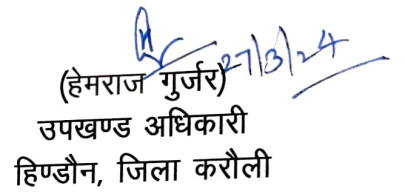 27/3/24
(हेमराज गुर्जर)
उपखण्ड अधिकारी
हिण्डौन, जिला करौली